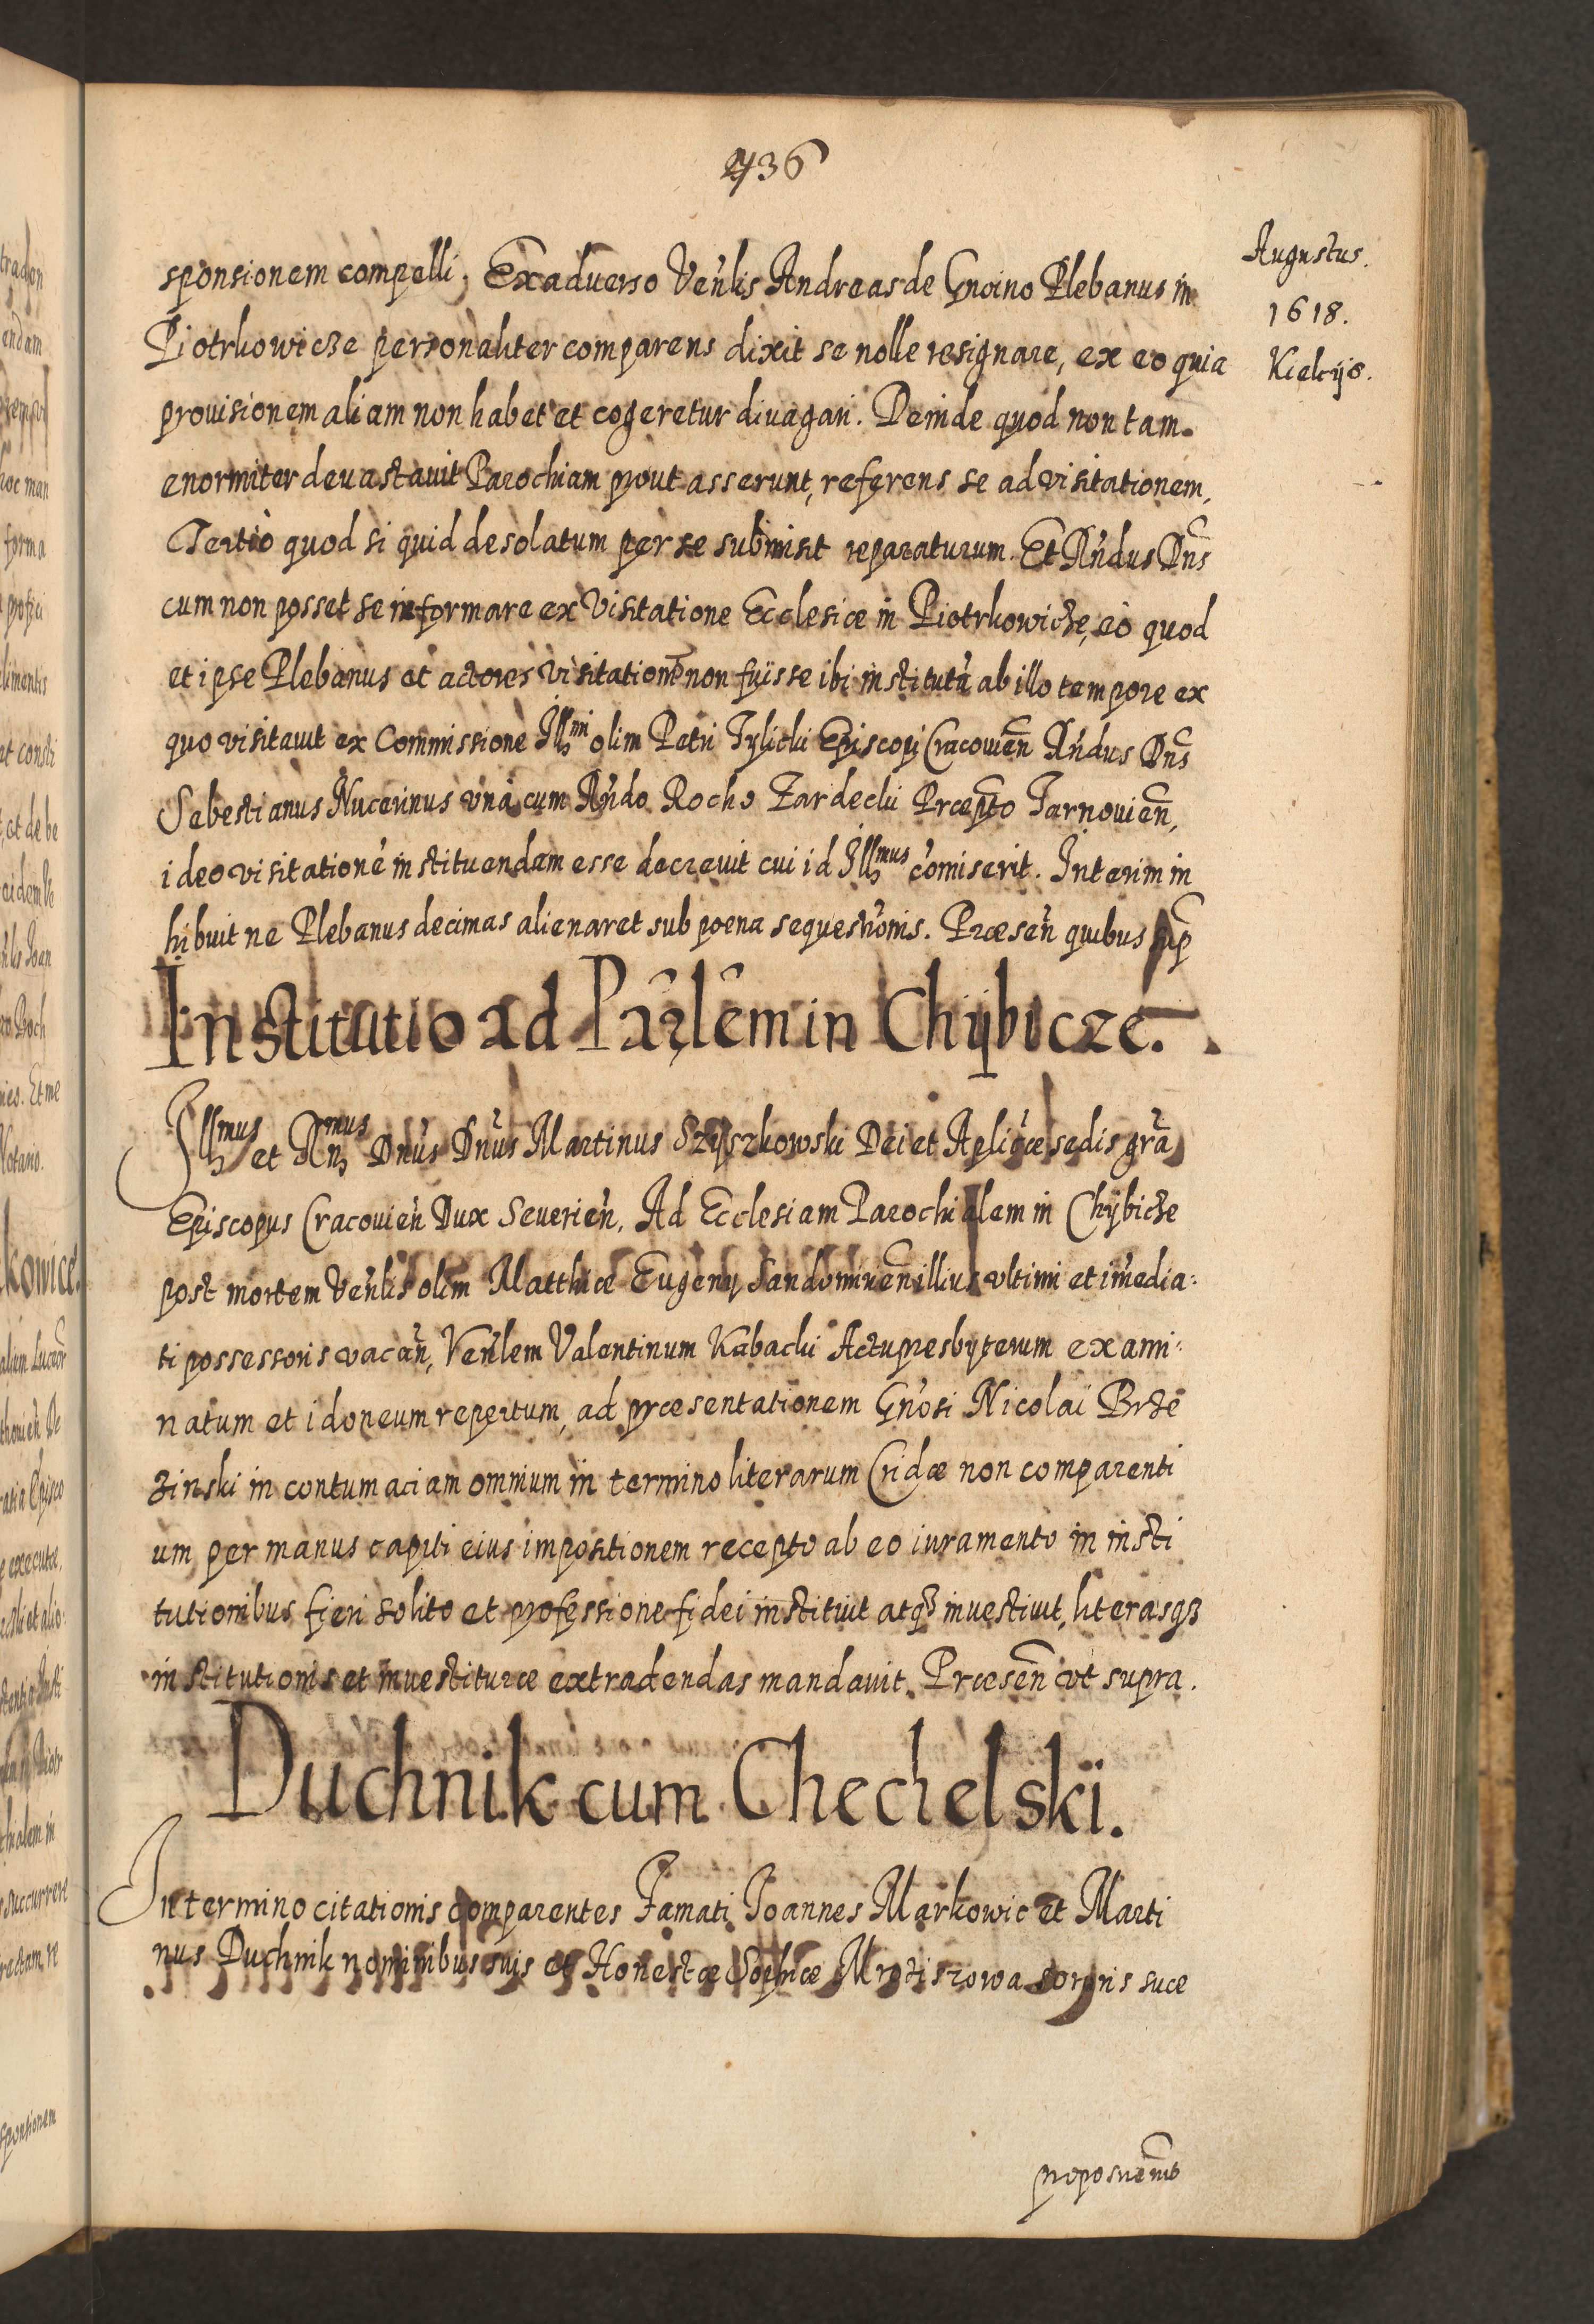 436
Augustus.
1618.
Kielcijs.
sponsionem compelli; Ex aduerso Venlis Andreas de Gnoino Plebanus in
Piotrkowicze personaliter comparens dixit se nolle resignare, ex eo quia
prouisionem aliam non habet et cogeretur diuagari. Deinde quod non tam
enormiter deuastauit Parochiam prout asserunt, referens se ad visitationem,
Tertiò quod si quid desolatum per se submisit reparaturum. Et Rndus Dns
cum non posset se informare ex Visitatione Ecclesiæ in Piotrkowicze, eò quod
et ipse Plebanus et actores visitationē non fuisse ibi institutū ab illo tempore ex
quo visitauit ex Commissione Illmi olim Petri Tylicki Episcopi Cracouien Rndus Dns
Sebestianus Nucerinus vnà cum Rndo Rocho Zardecki Præpto Tarnouien,
ideo visitationē instituendam esse decreuit cui id Illmus comiserit. Interim in
hibuit ne Plebanus decimas alienaret sub poena sequestronis. Præsen quibus sup
Institutio ad Parlem in Chybicze.
Illmus et Rnmus Dnus Dnus Martinus Szyszkowski Dei et Aplicæ sedis gra
Episcopus Cracouien Dux Seuerien, Ad Ecclesiam Parochialem in Chybicze
post mortem Venlis olim Matthiæ Eugeny Sandomirien illius vltimi et imedia:
ti possessoris vacan, Venlem Valentinum Kabacki Actupresbyterum exami:
natum et idoneum repertum, ad præsentationem Gnosi Nicolai Brze
zinski in contumaciam omnium in termino literarum Cridæ non comparenti
um per manus capiti eius impositionem recepto ab eo iuramento in insti
tutionibus fieri solito et professione fidei instituit atq3 inuestiuit, literasq3
institutionis et inuestituræ extradendas mandauit. Præsen vt supra.
Duchnik cum Chechelski.
In termino citationis comparentes Famati Joannes Markowic et Marti
nus Duchnik nominibus suis et Honestæ Sophiæ sororis suæ
proposuerunt